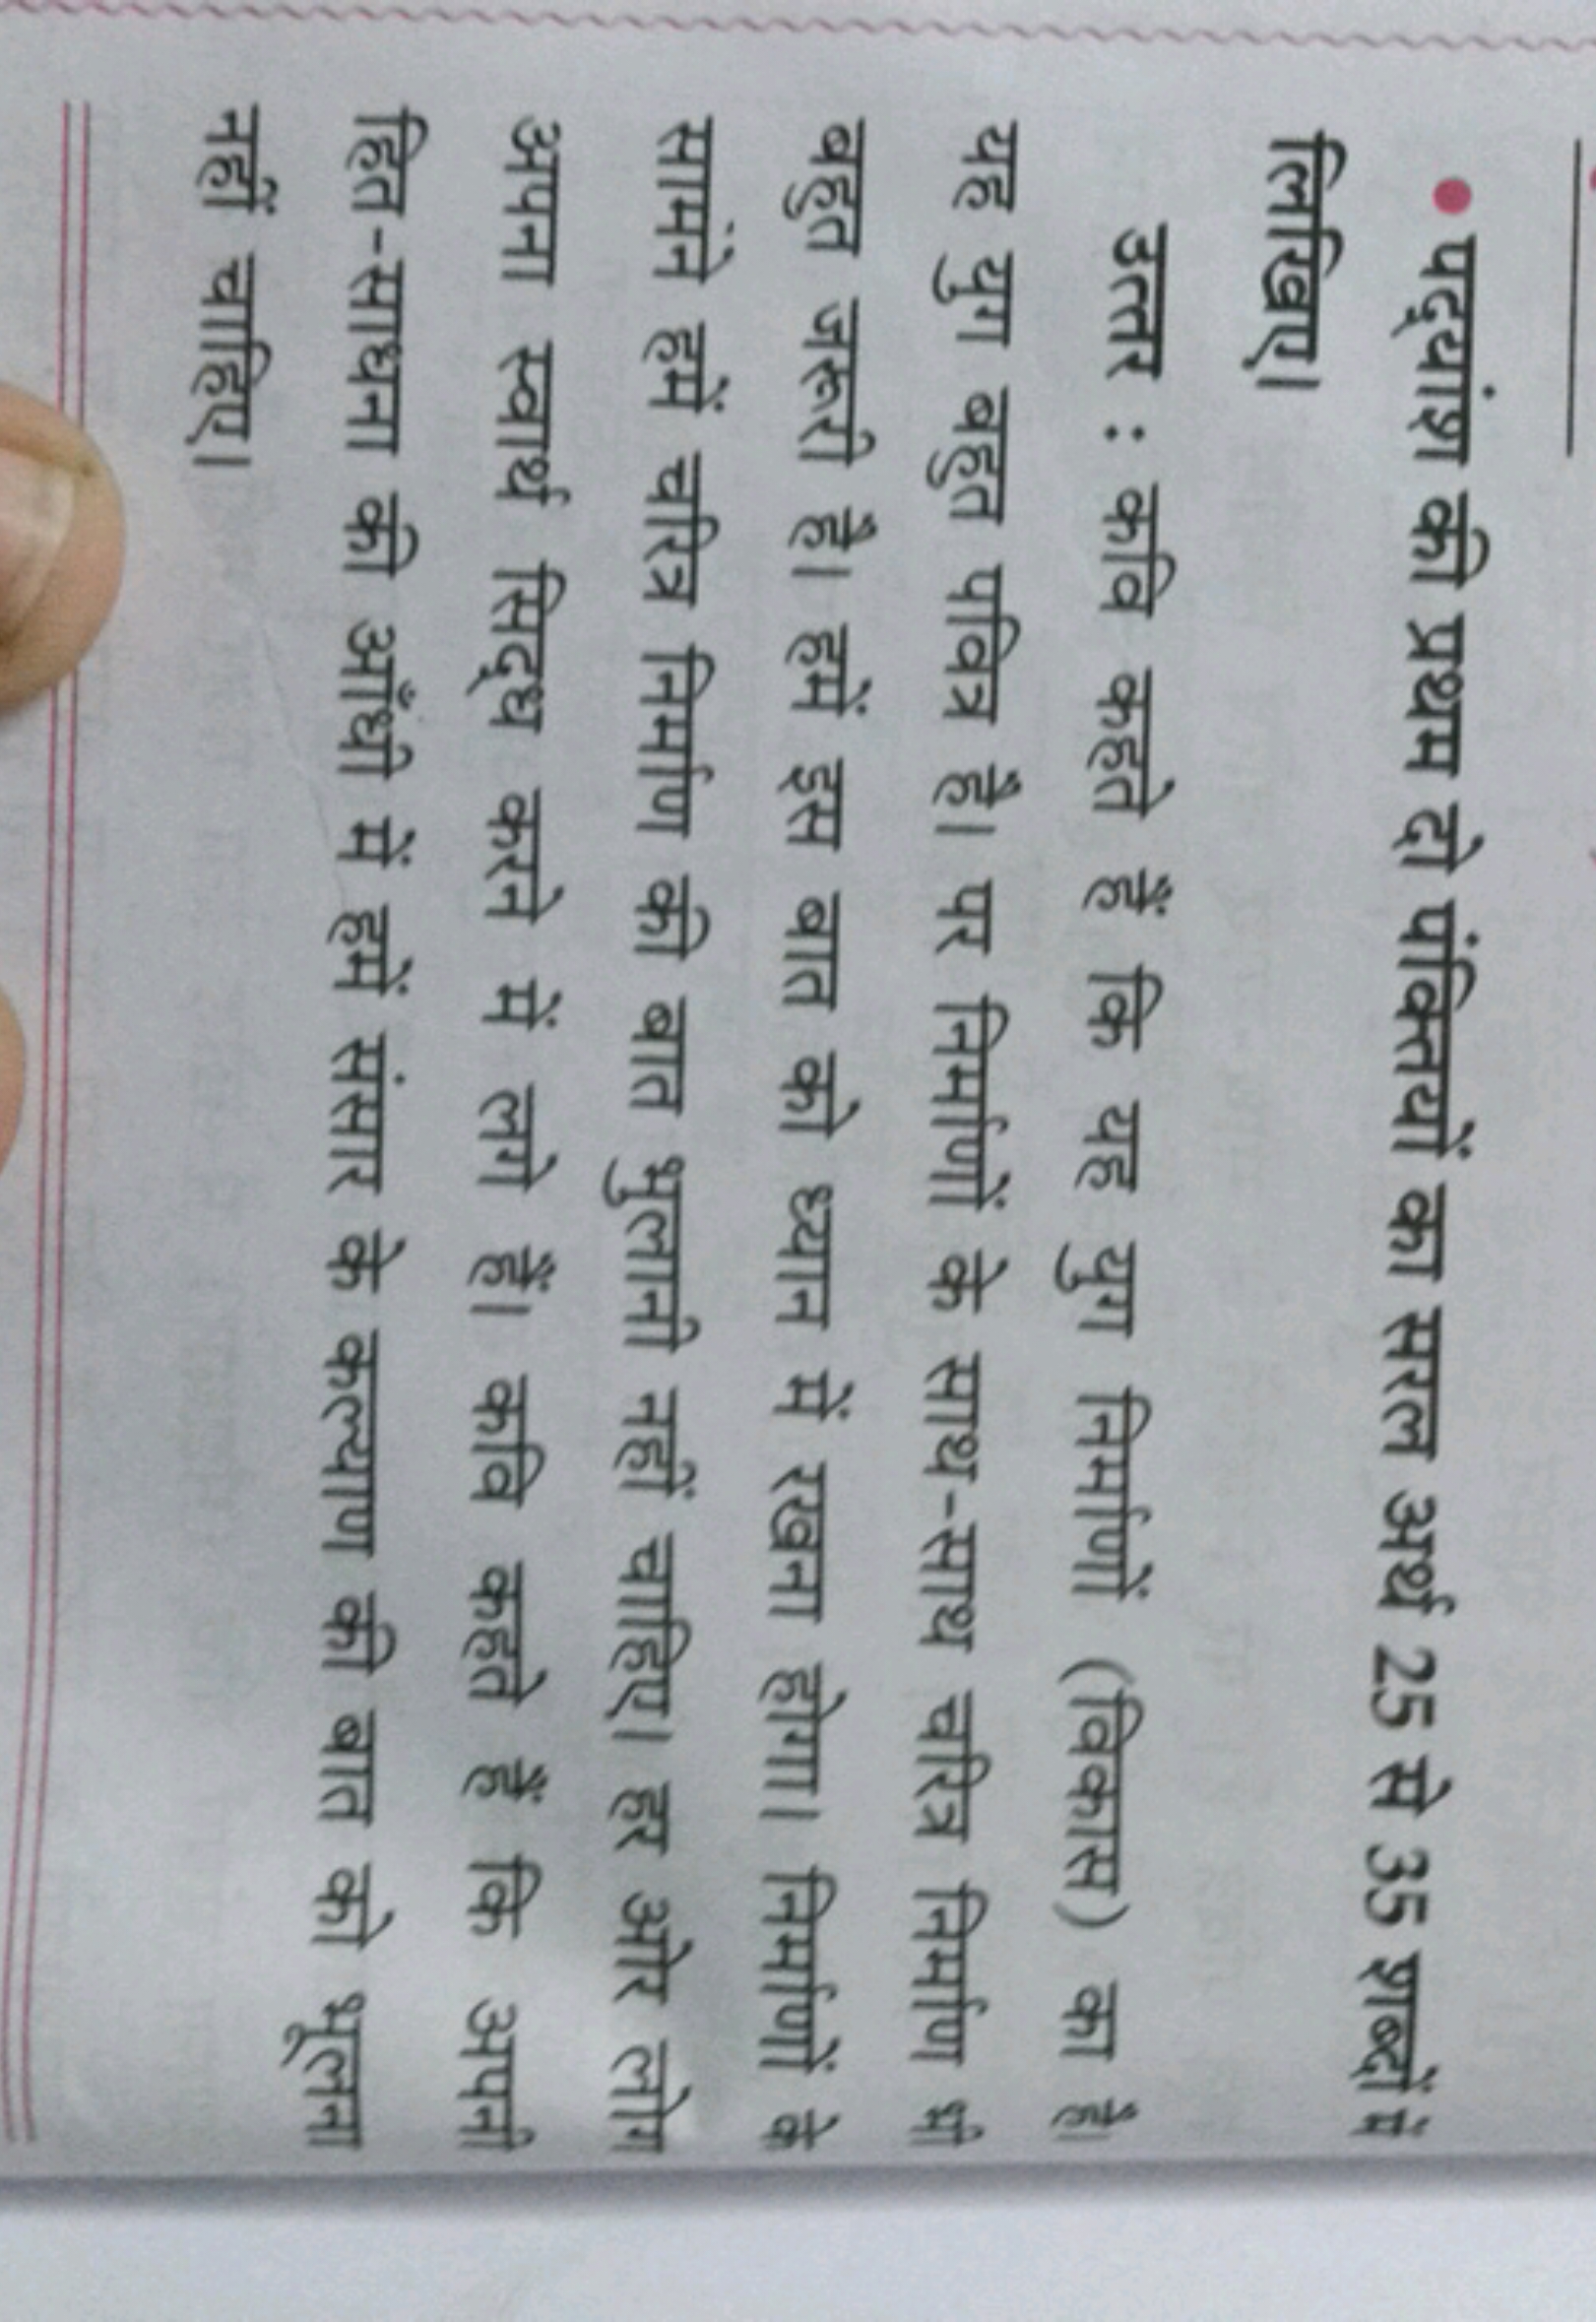 • पद्यांश की प्रथम दो पंक्तियों का सरल अर्थ 25 से 35 शब्दों में
लिखिए।
उत्तर : कवि कहते हैं कि यह युग निर्माणों (विकास) का है।
यह युग बहुत पवित्र है। पर निर्माणों के साथ-साथ चरित्र निर्माण भी
बहुत जरूरी है। हमें इस बात को ध्यान में रखना होगा। निर्माणों के
सामने हमें चरित्र निर्माण की बात भुलानी नहीं चाहिए। हर ओर लोग
अपना स्वार्थ सिद्ध करने में लगे हैं। कवि कहते हैं कि अपनी
हित-साधना की आँधी में हमें संसार के कल्याण की बात को भूलना
नहीं चाहिए।